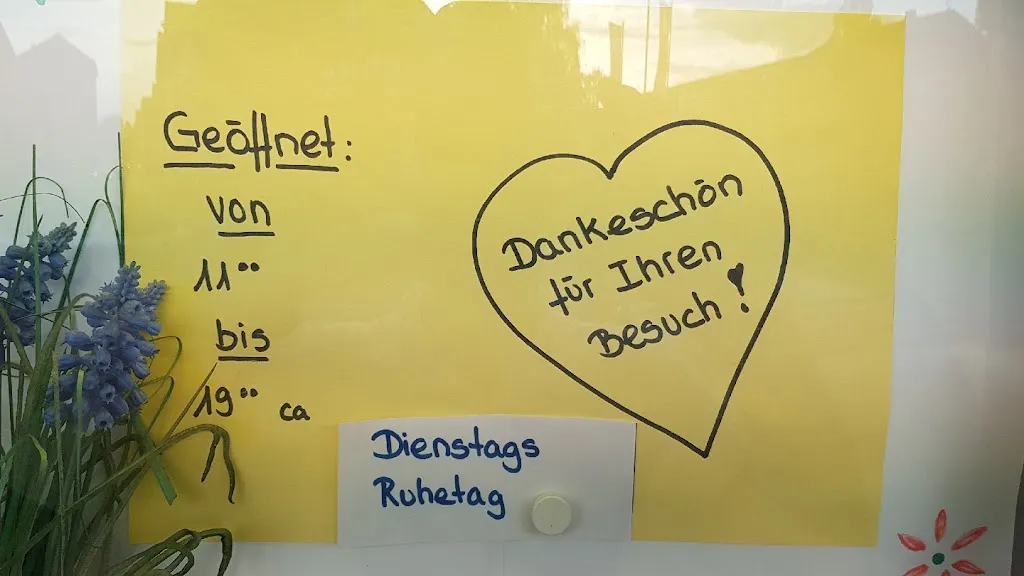 Geöffnet:
von
11°°
bis
19°° ca
Dankeschön
für Ihren
Besuch!
Dienstags
Ruhetag